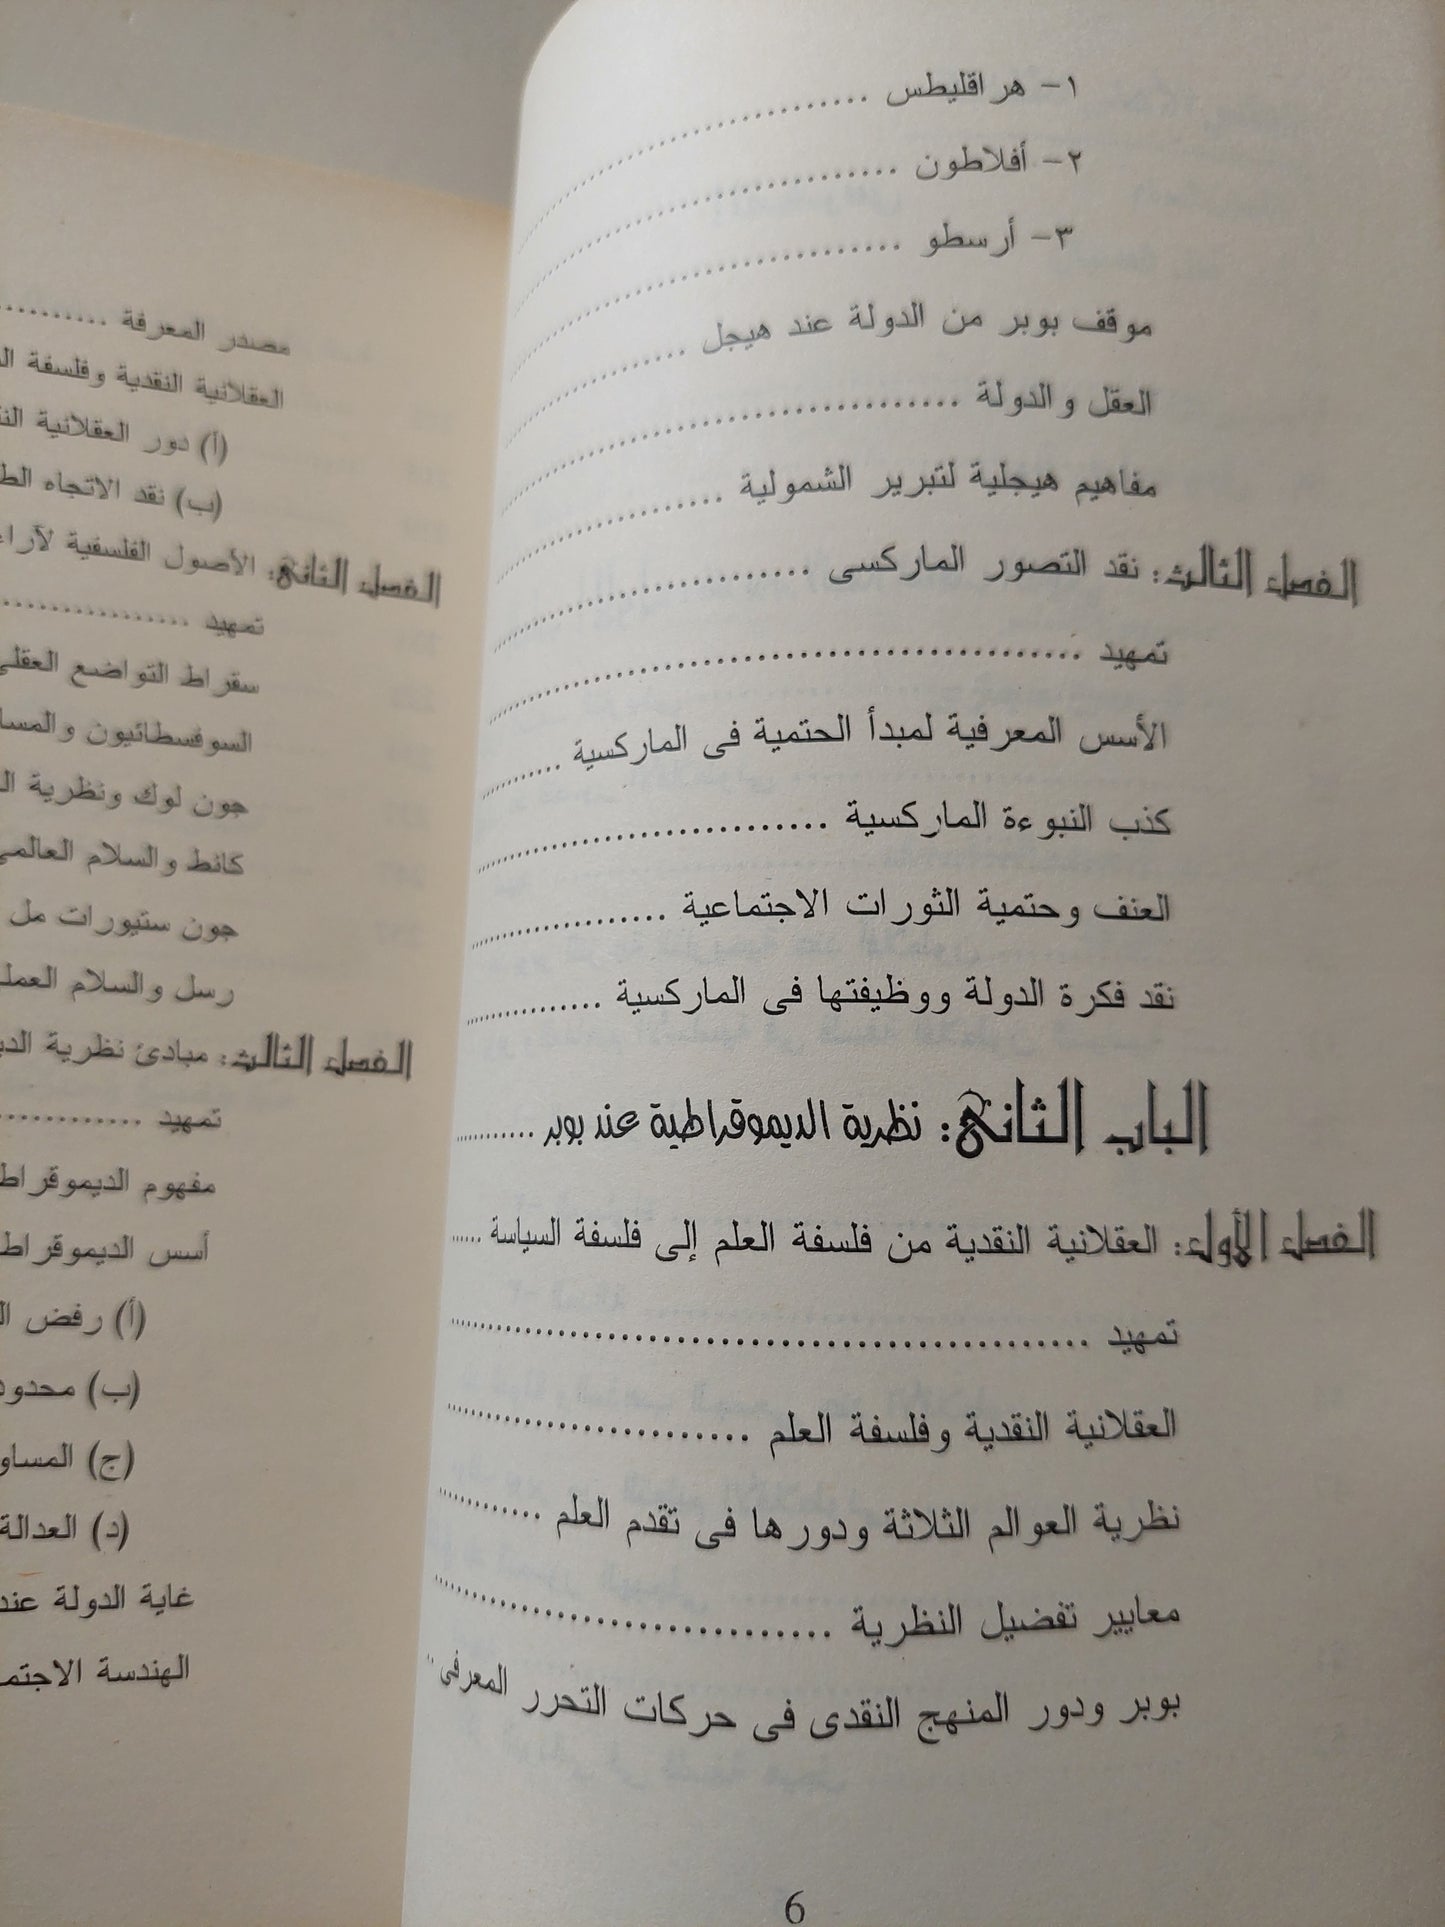 ١- هراقليطس ....................
٢- أفلاطون ....................
٣- أرسطو ....................
موقف بوبر من الدولة عند هيجل ..........
العقل والدولة ....................
مفاهيم هيجلية لتبرير الشمولية ..........
الفصل الثالث: نقد التصور الماركسى ..........
تمهيد ....................
الأسس المعرفية لمبدأ الحتمية فى الماركسية ..........
كذب النبوءة الماركسية ....................
العنف وحتمية الثورات الاجتماعية ..........
نقد فكرة الدولة ووظيفتها فى الماركسية ..........
الباب الثانى: نظرية الديموقراطية عند بوبر ..........
الفصل الأول: العقلانية النقدية من فلسفة العلم إلى فلسفة السياسة ......
تمهيد ....................
العقلانية النقدية وفلسفة العلم ..........
نظرية العوالم الثلاثة ودورها فى تقدم العلم ..........
معايير تفضيل النظرية ....................
بوبر ودور المنهج النقدى فى حركات التحرر المعرفى ..
6
مصدر المعرفة ..........
العقلانية النقدية وفلسفة
(أ) دور العقلانية
(ب) نقد الاتجاه
الفصل الثانى: الأصول الفلسفية
تمهيد ..........
سقراط التواضع العقلى
السوفسطائيون
جون لوك ونظرية
كانط والسلام العالمى
جون ستيورات مل
رسل والسلام
الفصل الثالث: مبادئ نظرية
تمهيد ..........
مفهوم
أسس
(أ) رفض
(ب)
(ج)
(د) العدالة
غاية الدولة عند
الهندسة